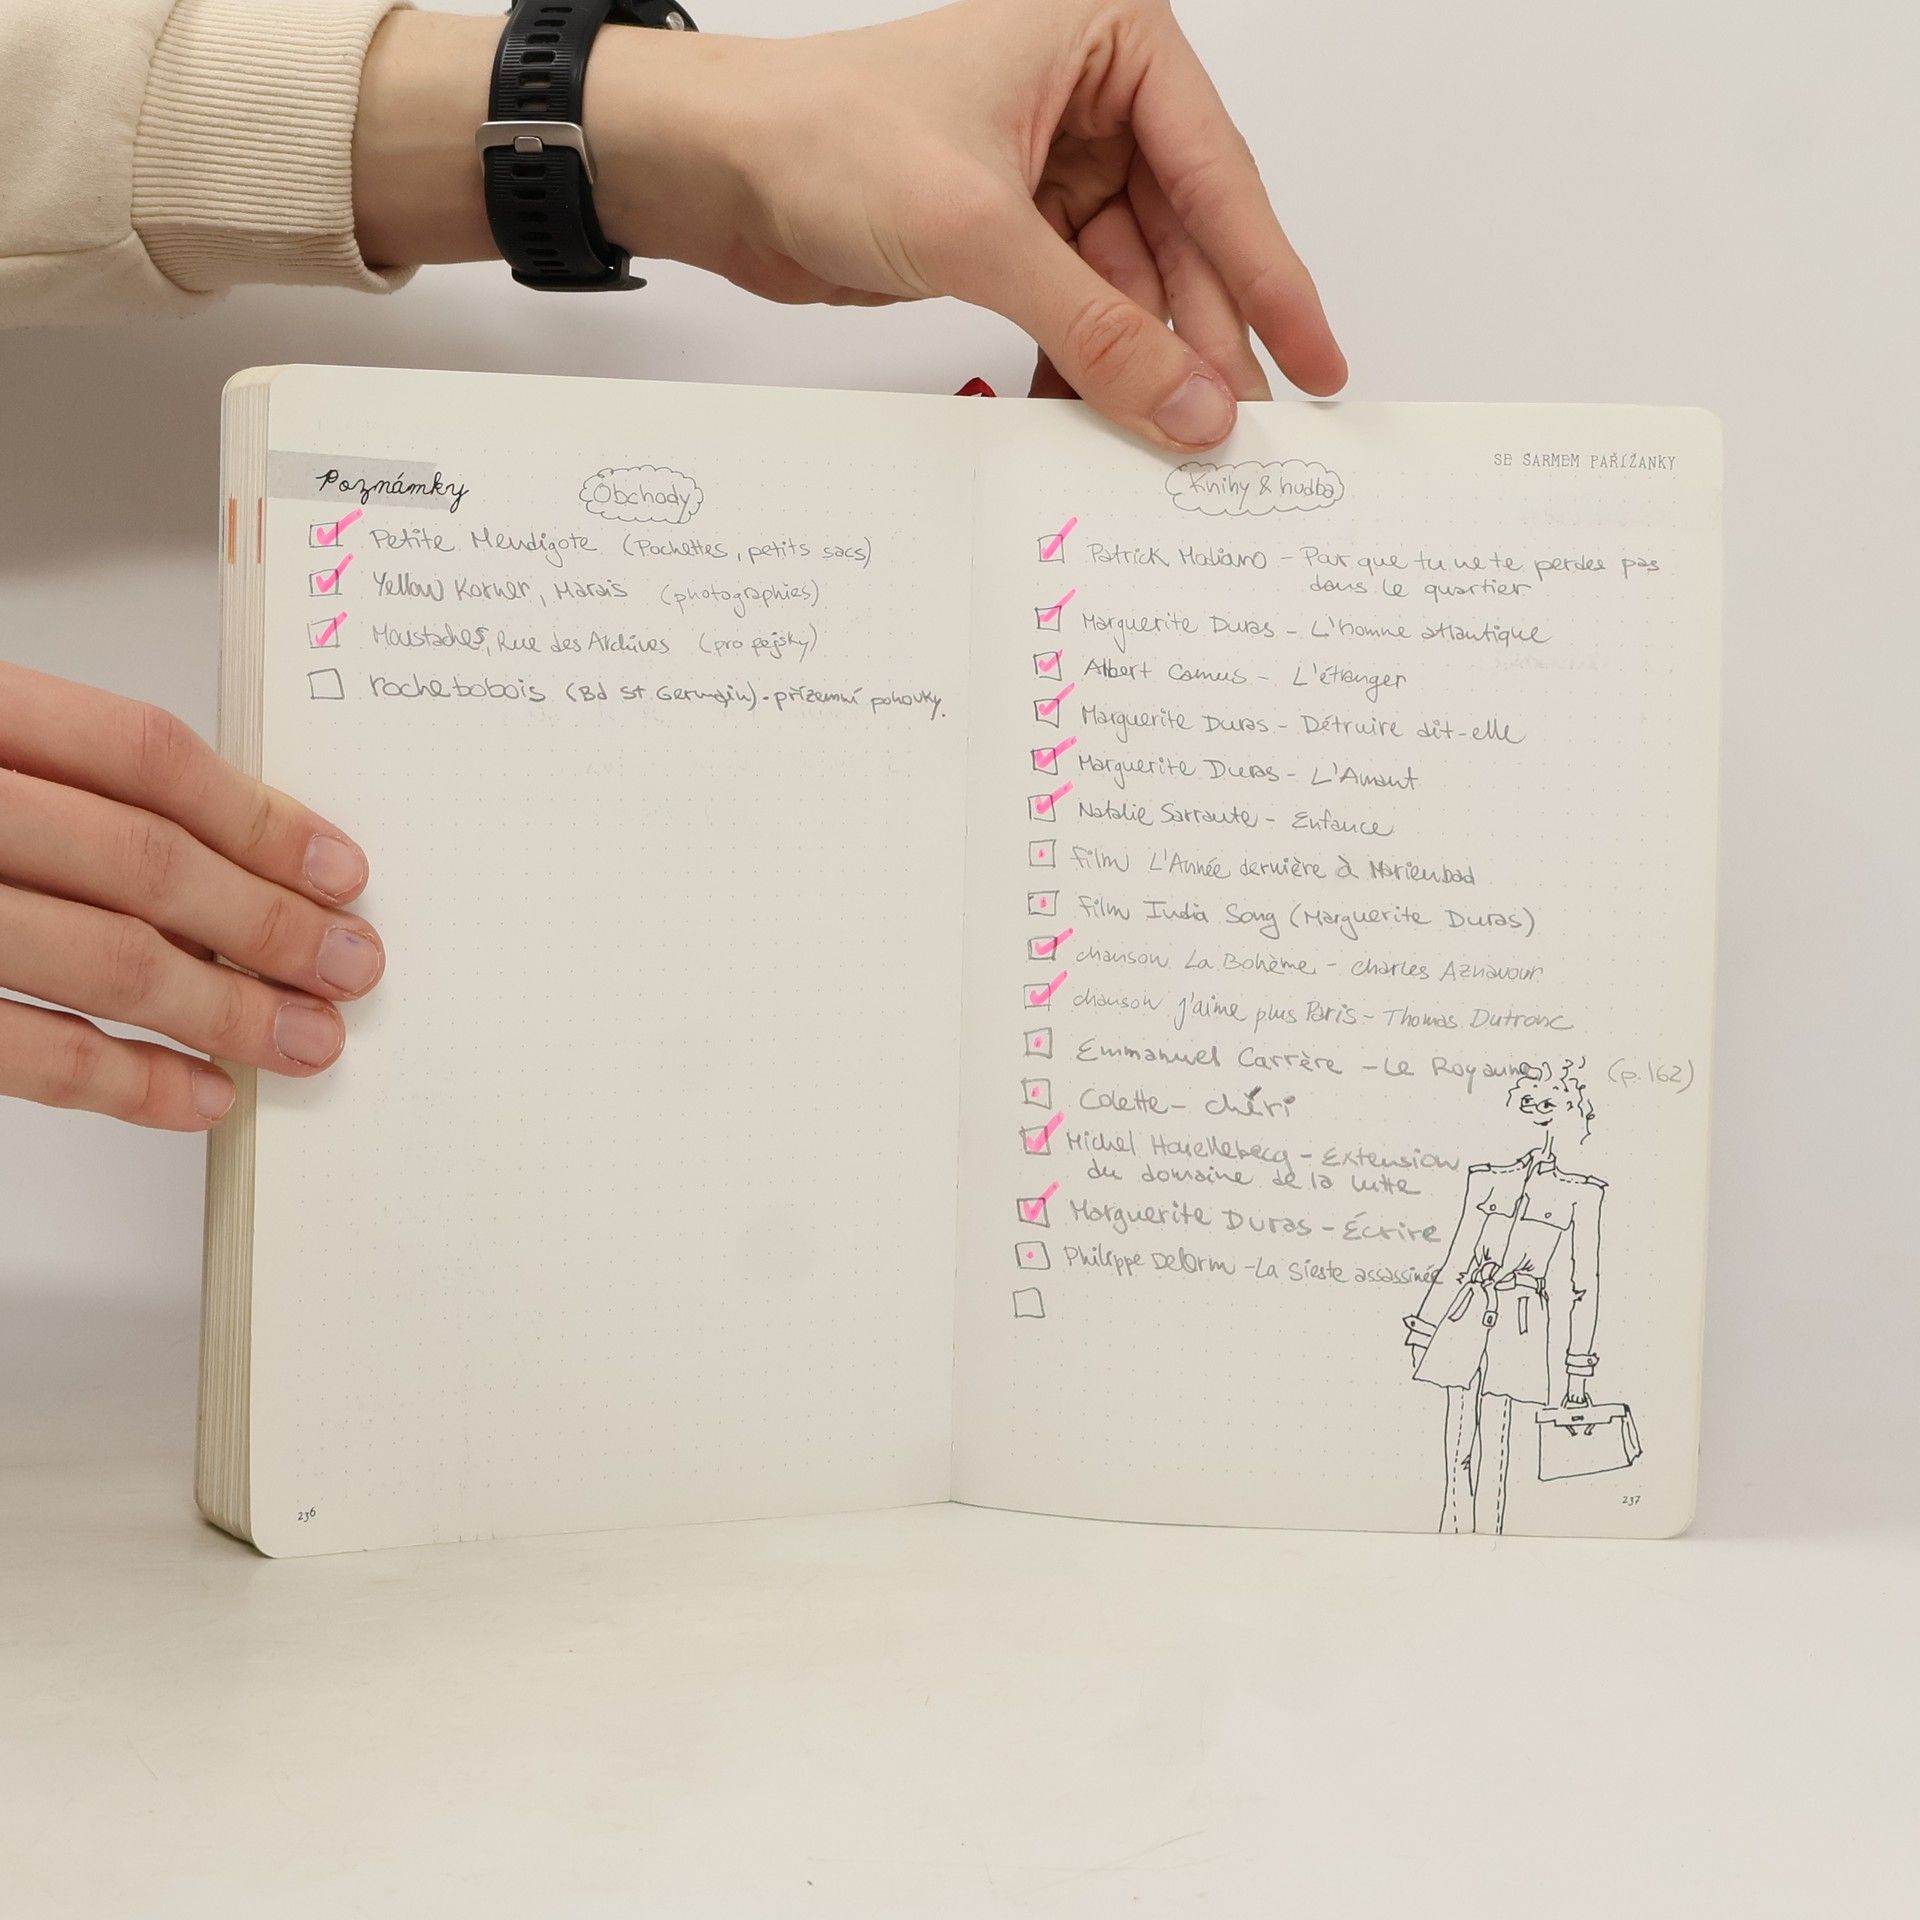 Poznámky
Obchody
Petite Mendigote (Pochettes, petits sacs)
Yellow Korner, Marais (photographies)
Moustaches, Rue des Archives (pro pejsky)
roche bobois (Bd St. Germain) - přízemní pohovky.
236
SE ŠARMEM PAŘÍŽANKY
Knihy & hudba
Patrick Modiano - Par que tu ne te perdes pas
dans le quartier
Marguerite Duras - L'homme atlantique
Albert Camus - L'étranger
Marguerite Duras - Détruire dit-elle
Marguerite Duras - L'Amant
Natalie Sarraute - Enfance
film L'Année dernière à Marienbad
film India Song (Marguerite Duras)
chanson La Bohème - Charles Aznavour
chanson j'aime plus Paris - Thomas Dutronc
Emmanuel Carrère - Le Royaume (p.162)
Colette - chéri
Michel Houellebecq - Extension
du domaine de la lutte
Marguerite Duras - Écrire
Philippe Delerm - La Sieste assassinée
237